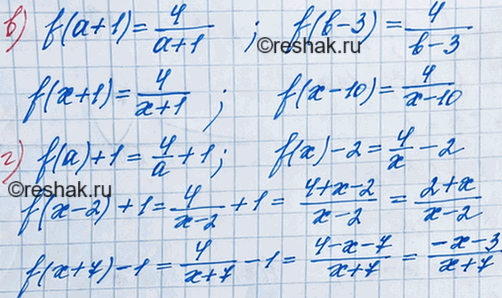 в) f(a+1)=4/(a+1) ; f(в-3)=4/(в-3)
©reshak.ru
f(x+1)=4/(x+1) ; f(x-10)=4/(x-10)
©reshak.ru
г) f(a)+1=4/a+1; f(x)-2=4/x-2
©reshak.ru
f(x-2)+1=4/(x-2)+1=(4+x-2)/(x-2)=(2+x)/(x-2)
f(x+7)-1=4/(x+7)-1=(4-x-7)/(x+7)=(-x-3)/(x+7)